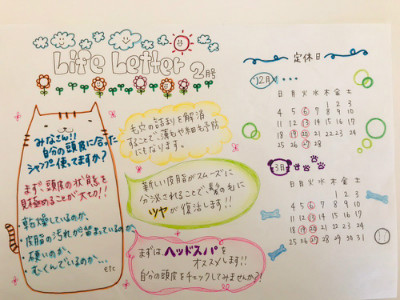 Life Letter 2月号
みなさん!!
自分の頭皮に合った
シャンプー使ってますか?
まず、頭皮の状態を
見極めることが大切!!
乾燥しているのか、
皮脂の汚れが留まっているのか、
硬いのか、
むくんでいるのか...
etc
毛穴の詰まりを解消
することで、薄毛や細毛予防
にもなります。
新しい皮脂がスムーズに
分泌されることで、髪の毛に
ツヤが復活します!!
まずは、ヘッドスパを
オススメします!
自分の頭皮をチェックしてみませんか?!
定休日
2月
日 月 火 水 木 金 土
1 2 3
4 5 6 7 8 9 10
11 12 13 14 15 16 17
18 19 20 21 22 23 24
25 26 27 28
3月
日 月 火 水 木 金 土
1 2 3
4 5 6 7 8 9 10
11 12 13 14 15 16 17
18 19 20 21 22 23 24
25 26 27 28 29 30 31